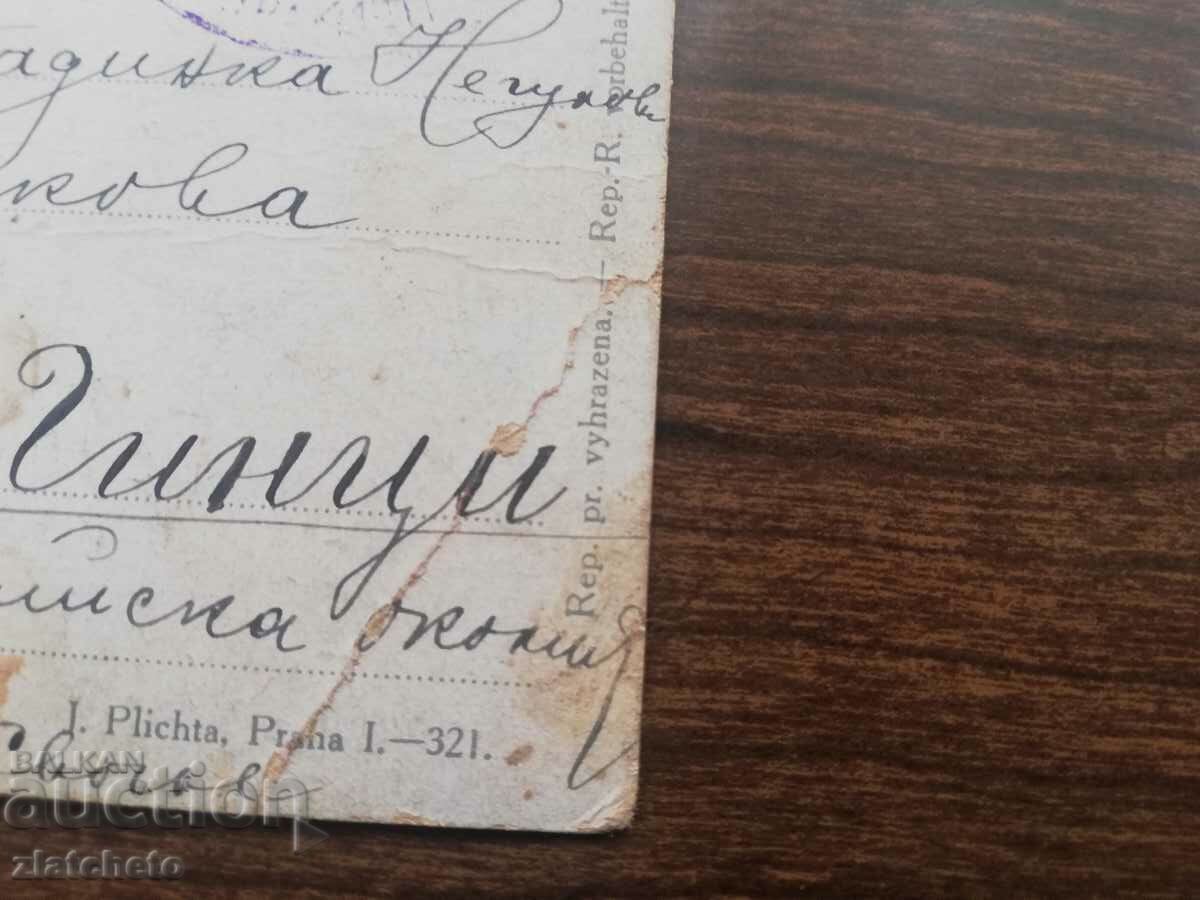 адинка Негунов
кова
Гинци
ийска околи
J. Plichta, Praha I.—321.
Rep. pr. vyhrazena. — Rep.-R. vorbehalt
BALKAN
auction
zlatcheto